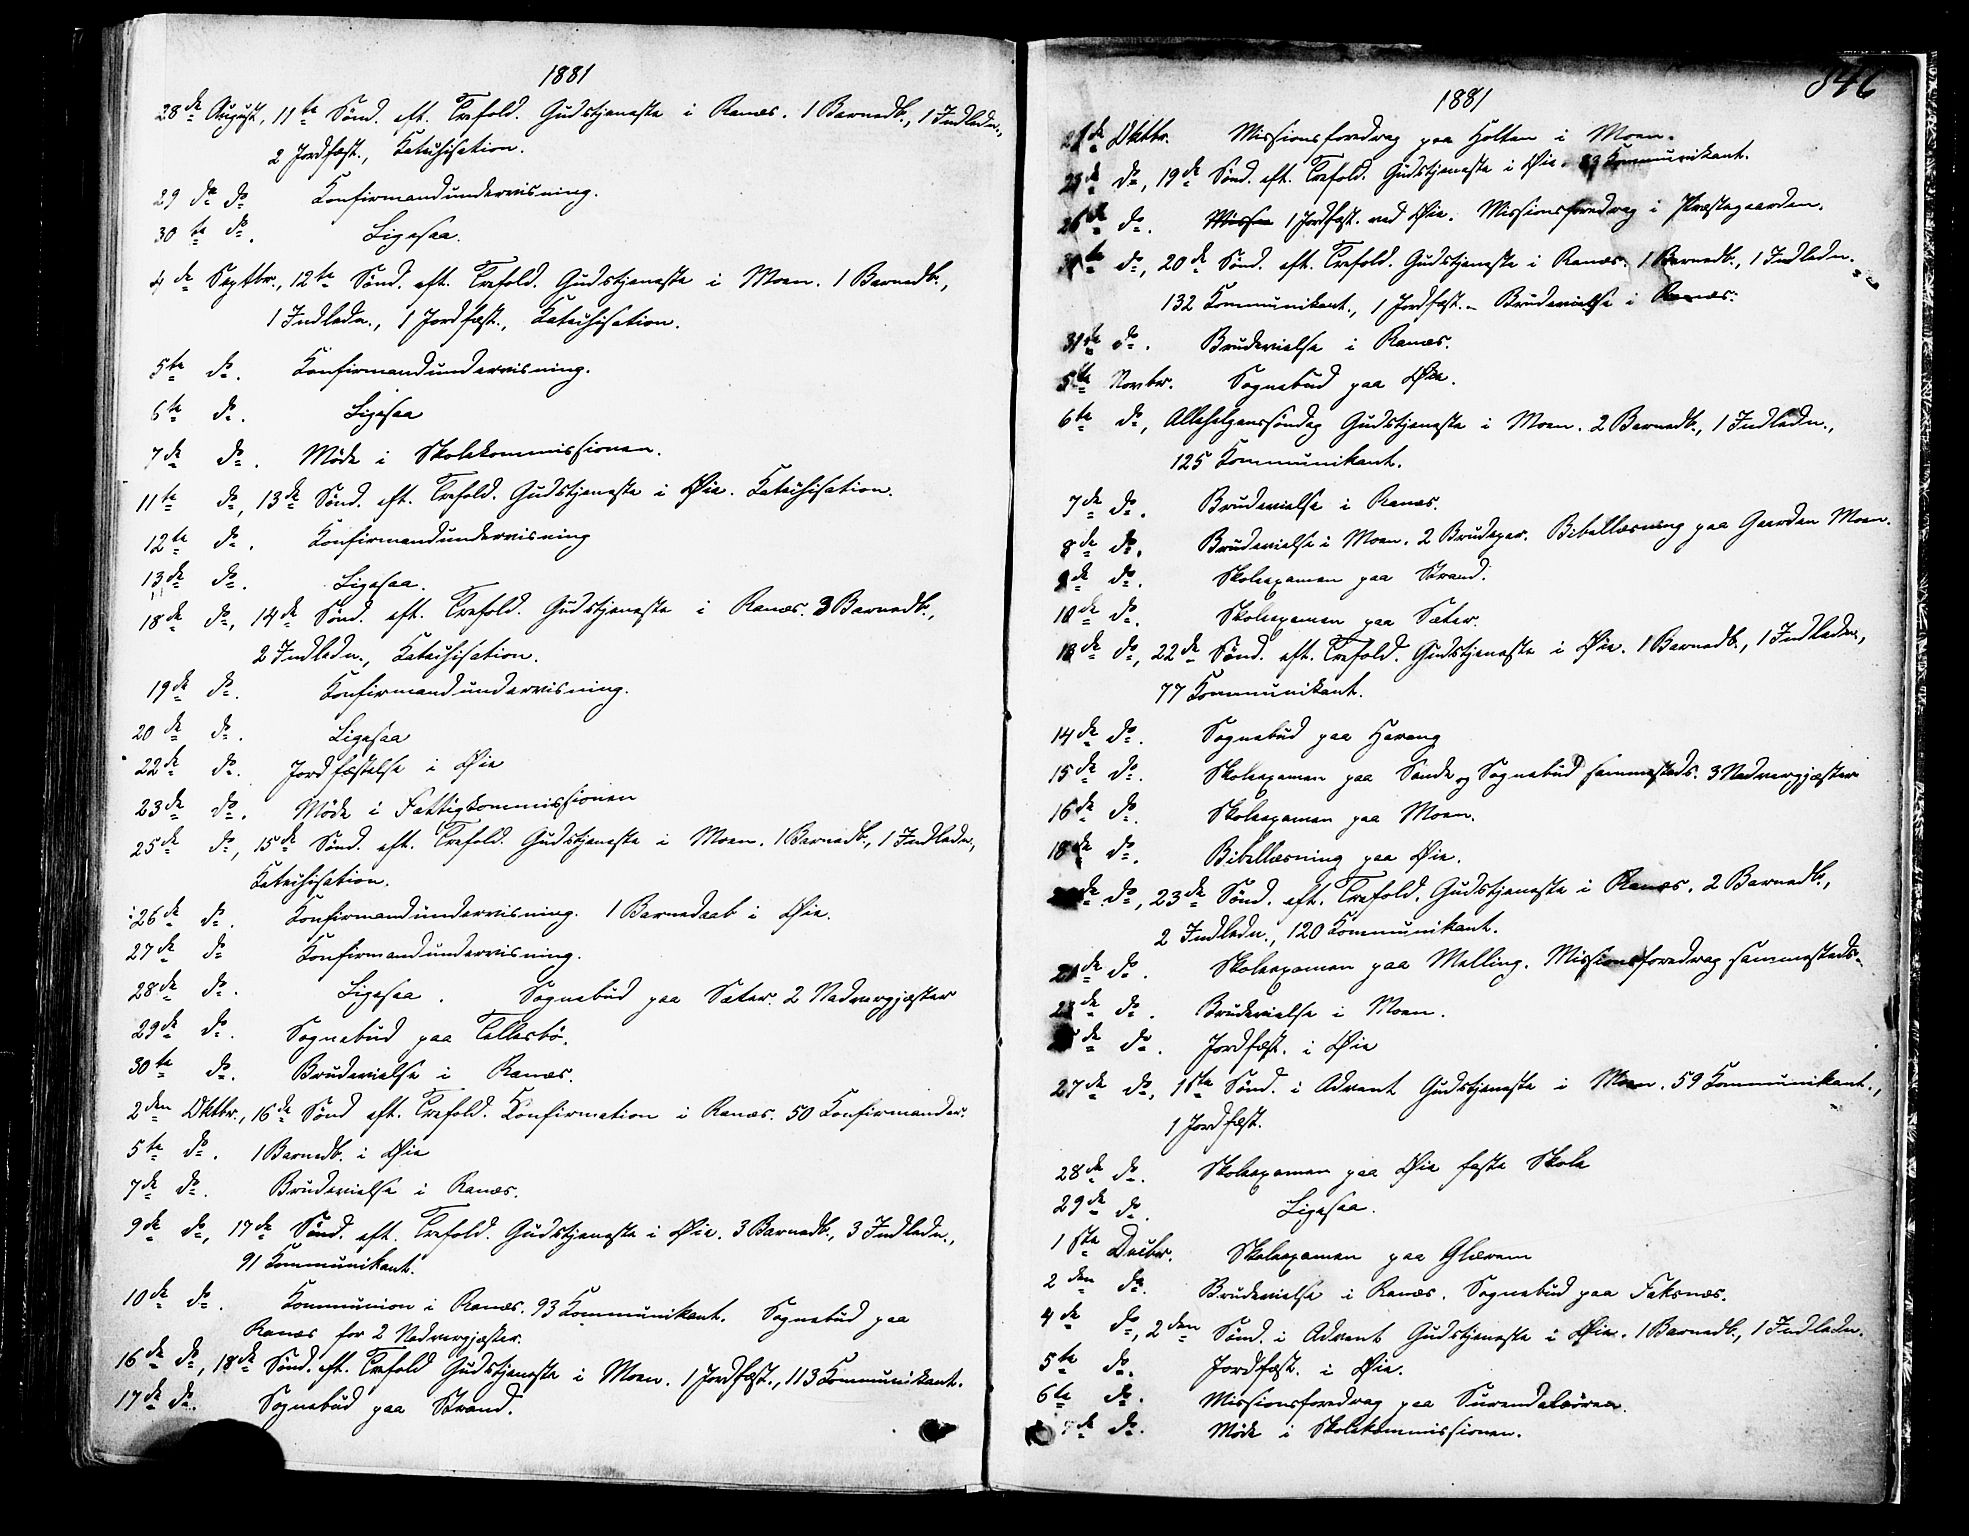 1881
28de August, 11te Sönd. eft. Trefold. Gudstjeneste i Ranæs. 1 Barnedb., 1 Indledn.,
2 Jordfæst., Katechisation.
29 de do Konfirmandundervisning.
30te do. Ligesaa.
4de Septbr., 12te Sönd. eft. Trefold. Gudstjeneste i Moen. 1 Barnedb.,
1 Indledn., 1 Jordfæst., Katechisation.
5te do. Konfirmandundervisning.
6te do. Ligesaa
7de do. Möde i Skolekommissionen.
11te do, 13de Sönd. eft. Trefold. Gudstjeneste i Øie. Katechisation.
12te do. Konfirmandundervisning
13de do. Ligesaa.
18de do, 14de Sönd. eft. Trefold. Gudstjeneste i Ranæs. 3 Barnedb.,
2 Indledn., Katechisation.
19de do. Konfirmandundervisning.
20de do. Ligesaa
22de do. Jordfæstelse i Øie
23de do. Möde i Fattigkommissionen
25de do, 15de Sönd. eft. Trefold. Gudstjeneste i Moen. 1 Barnedb., 1 Indledn,
Katechisation.
26de do. Konfirmandundervisning. 1 Barnedaab i Øie.
27de do Konfirmandundervisning.
28de do. Ligesaa. Sognebud paa Sæter. 2 Nadvergjæster
29de do. Sognebud paa Tellesbö.
30te do. Brudevielse i Ranæs.
2den Oktbr., 16de Sönd eft. Trefold. Konfirmation i Ranæs. 50 Konfirmander.
5te do. 1 Barnedb. i Øie
7de do. Brudevielse i Ranæs.
9de do, 17de Sönd. eft. Trefold. Gudstjeneste i Øie. 3 Barnedb., 3 Indledn.,
91 Kommunikant.
10de do. Kommunion i Ranæs. 93 Kommunikant. Sognebud paa
Ranæs for 2 Nadvergjæster.
16de do, 18de Sönd. eft. Trefold Gudstjeneste i Moen. 1 Jordfæst., 113 Kommunikant.
17de do. Sognebud paa Strand.
846
1881
de Oktbr. Missionsforedrag paa Holten i Moen.
23de do, 19de Sönd. eft. Trefold. Gudstjeneste i Øie. Kommunikant.
26de do. Missio 1 Jordfæst. ved Øie. Missionsforedrag i Præstegaarden.
30te do, 20de Sönd. eft. Trefold. Gudstjeneste i Ranæs. 1 Barnedb., 1 Indledn.
132 Kommunikant., 1 Jordfæst. - Brudevielse i Ranæs.
31te do. Brudevielse i Ranæs.
5te Novbr. Sognebud paa Øie.
6te do, Allehelgenssöndag Gudstjeneste i Moen. 2 Barnedb., 1 Indledn.,
125 Kommunikant.
7de do. Brudevielse i Ranæs.
8de do. Brudevielse i Moen. 2 Brudepar. Bibellæsning paa Gaarden Moen.
9de do. Skoleexamen paa Strand.
10de do. Skoleexamen paa Sæter.
13de do, 22de Sönd. eft. Trefold. Gudstjeneste i Øie. 1 Barnedb., 1 Indledn.,
77 Kommunikant.
14de do. Sognebud paa Harang
15de do. Skoleexamen paa Sande og Sognebud sammesteds. 3 Nadvergjæster
16de do. Skoleexamen paa Moen.
18de do. Bibellæsning paa Øie.
20de do, 23de Sönd. eft. Trefold. Gudstjeneste i Ranæs. 2 Barnedb.,
2 Indledn., 120 Kommunikant.
21de do. Skoleexamen paa Melling. Missionsforedrag sammesteds.
de do. Brudevielse i Moen.
de do. Jordfæst. i Øie
27de do, 1ste Sönd. i Advent Gudstjeneste i Moen. 59 Kommunikant.,
1 Jordfæst.
28de do. Skoleexamen paa Øie faste Skole
29de do. Ligesaa.
1ste Decbr. Skoleexamen paa Glærem
2den do. Brudevielse i Ranæs. Sognebud paa Faksnæs.
4de do, 2den Sönd. i Advent Gudstjeneste i Øie. 1 Barnedb., 1 Indledn.
5te do. Jordfæst. i Øie.
6te do. Missionsforedrag paa Surendalsören.
7de do. Möde i Skolekommissionen.